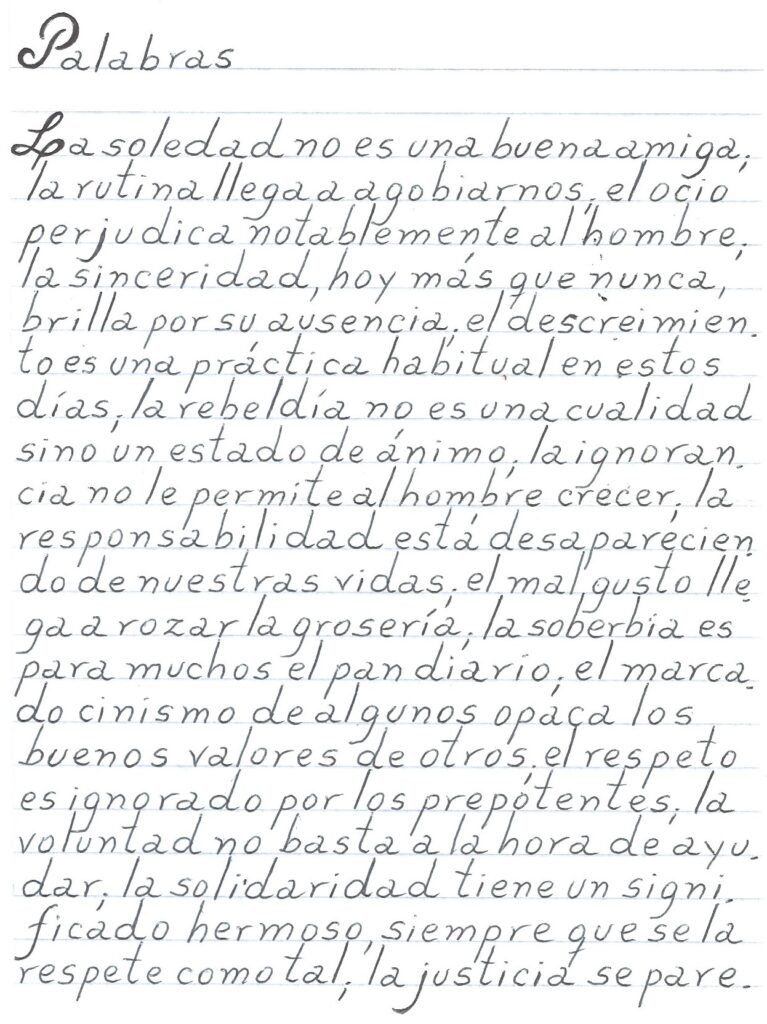 Palabras
La soledad no es una buena amiga;
la rutina llega a agobiarnos; el ocio
perjudica notablemente al hombre;
la sinceridad, hoy más que nunca,
brilla por su ausencia; el descreimien-
to es una práctica habitual en estos
días; la rebeldía no es una cualidad
sino un estado de ánimo; la ignoran-
cia no le permite al hombre crecer; la
responsabilidad está desaparecien
do de nuestras vidas; el mal gusto lle-
ga a rozar la grosería; la soberbia es
para muchos el pan diario; el marca-
do cinismo de algunos opaca los
buenos valores de otros; el respeto
es ignorado por los prepotentes; la
voluntad no basta a la hora de ayu-
dar; la solidaridad tiene un signi-
ficado hermoso, siempre que se la
respete como tal; la justicia se pare-